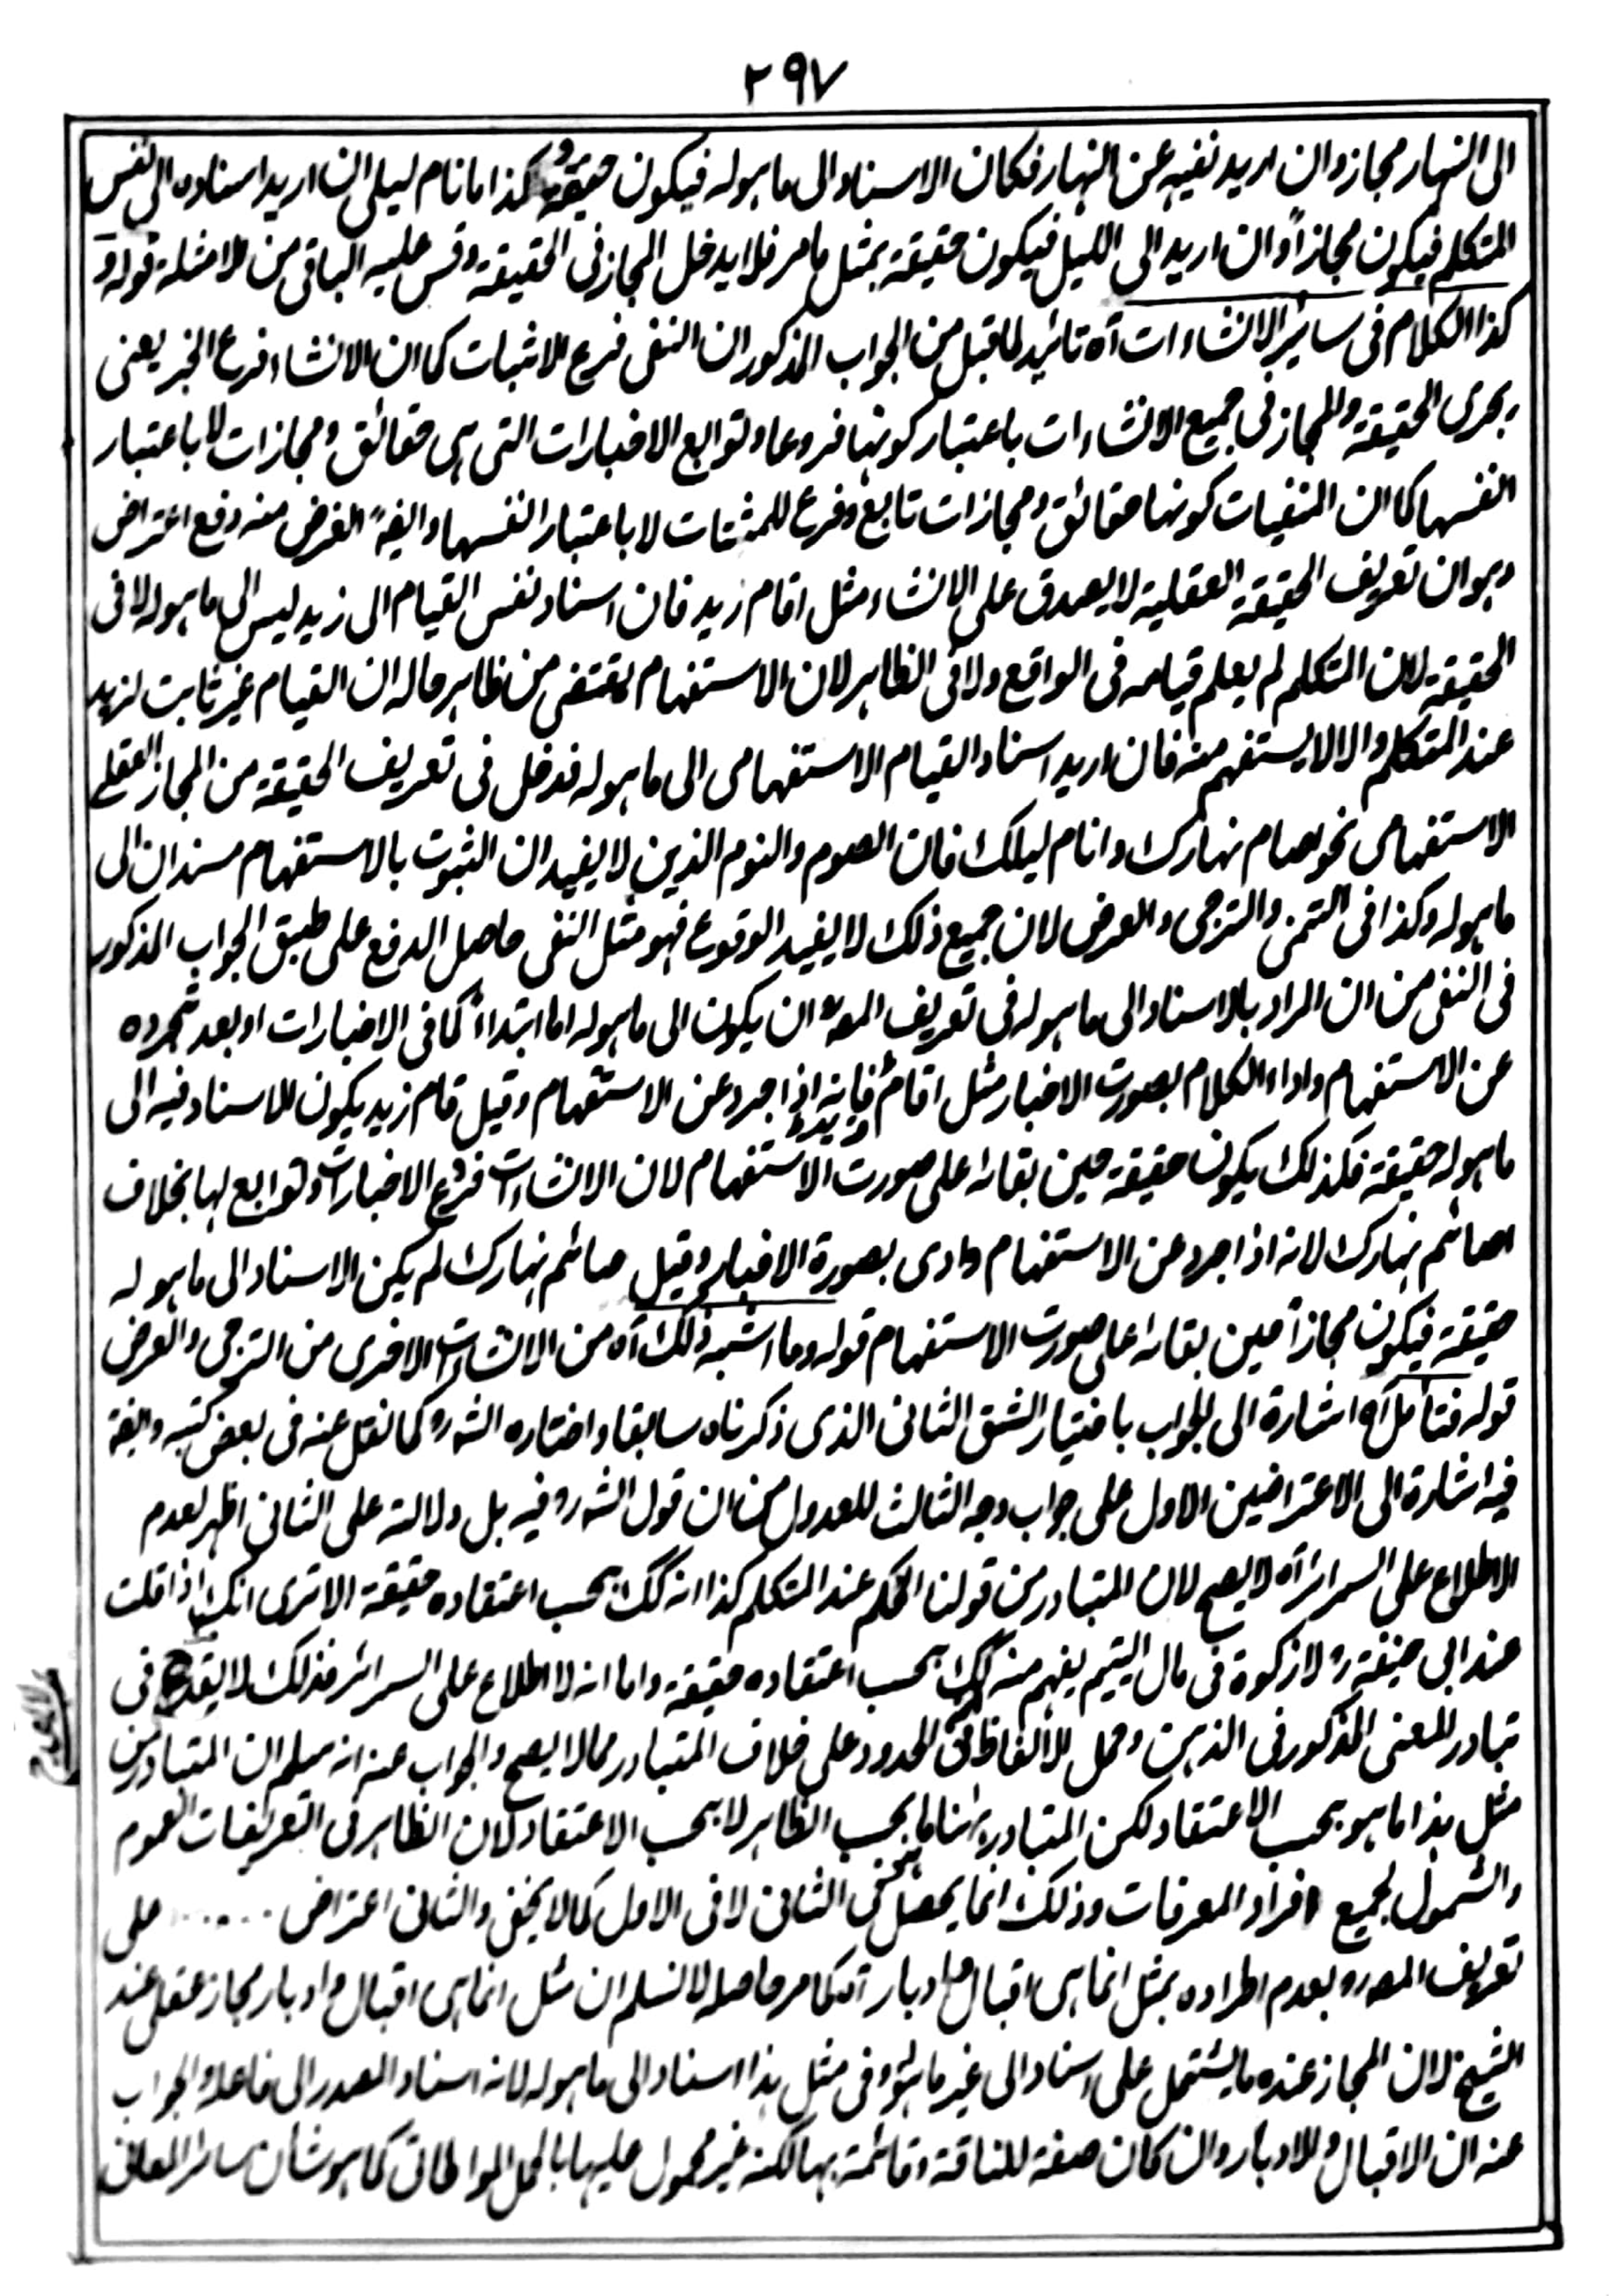 ٢٩٧
الی النہار مجاز وان ارید نفیہ عن النہار فکان الاسناد الی ما ہولہ فیکون حقیقۃ وکذا ما نام لیلی ان ارید اسنادہ الی نفس
المتکلم فیکون مجازاً وان ارید الی اللیل فیکون حقیقۃ بمثل ما مر فلا یدخل المجاز فی الحقیقۃ وقس علیہ الباقی من الامثلۃ قولہ و
کذا الکلام فی سائر الانشاءات آہ تائید لما قبل من الجواب المذکور ان النفی فرع الاثبات کما ان الانشاء فرع الخبر یعنی
یجری الحقیقۃ والمجاز فی جمیع الانشاءات باعتبار کونہا فروعا وتوابع الاخبارات التی ہی حقائق ومجازات لا باعتبار
انفسہا کما ان المنفیات کونہا حقائق ومجازات تابع وفرع للمثبتات لا باعتبار انفسہا وایضہ الغرض منہ دفع اعتراض
وہو ان تعریف الحقیقۃ العقلیۃ لا یصدق علی الانشاء مثل اقام زید فان اسناد نفس القیام الی زید لیس الی ما ہولہ لا فی
الحقیقۃ لان المتکلم لم یعلم قیامہ فی الواقع ولا فی الظاہر لان الاستفہام یقتضی من ظاہر حالہ ان القیام غیر ثابت لزید
عند المتکلم والا لا یستفہم منہ فان ارید اسناد القیام الاستفہامی الی ما ہولہ فدخل فی تعریف الحقیقۃ من المجاز العقلے
الاستفہامی نحو اصام نہارک وانام لیلک فان الصوم والنوم الذین لا یفیدان الثبوت بالاستفہام مسندان الی
ما ہولہ وکذا فی التمنی والترجی والعرض لان جمیع ذلک لا یفید الوقوع فہو مثل النفی حاصل الدفع علی طبق الجواب المذکور
فی النفی من ان المراد بالاسناد الی ما ہولہ فی تعریف المصؒ ان یکون الی ما ہولہ اما ابتداءً کما فی الاخبارات او بعد تجردہ
عن الاستفہام واداء الکلام بصورت الاخبار مثل اقام زید فانہ اذا جرد عن الاستفہام وقیل قام زید یکون الاسناد فیہ الی
ما ہولہ حقیقۃ فکذلک یکون حقیقۃ حین بقائہ علی صورت الاستفہام لان الانشاءات فرع الاخبارات وتوابع لہا بخلاف
اصائم نہارک لانہ اذا جرد عن الاستفہام وادی بصورۃ الاخبار وقیل صائم نہارک لم یکن الاسناد الی ما ہولہ
حقیقۃ فیکون مجازاً حین بقائہ علی صورت الاستفہام قولہ وما اشبہ ذلک آہ من الانشاءات الاخری من الترجی والعرض
قولہ فتأمل آہ اشارۃ الی الجواب باختیار الشق الثانی الذی ذکرناہ سابقا واختارہ الشہ رو کما نقل عنہ فی بعض کتبہ وایضہ
فیہ اشارۃ الی الاعتراضین الاول علی جواب وجہ الثالث للعدول من ان قول الشہ رو فیہ بل دلالتہ علی الثانی اظہر لعدم
الاطلاع علی السرائر آہ لا یصح لان المتبادر من قولنا الحکم عند المتکلم کذا انہ کک بحسب اعتقادہ حقیقۃ الا تری انک اذا قلت
عند ابی حنیفۃ رو لا زکوۃ فی مال الیتیم یفہم منہ کک بحسب اعتقادہ حقیقۃ واما انہ لا اطلاع علی السرائر فذلک لا یقدح فی
تبادر المعنی المذکور فی الذہن وحمل الالفاظ فی الحدود علی خلاف المتبادر مما لا یصح والجواب عنہ انہ سلم ان المتبادر من
مثل ہذا ما ہو بحسب الاعتقاد لکن المتبادر ہہنا ما بحسب الظاہر لا بحسب الاعتقاد لان الظاہر فی التعریفات العموم
والشمول لجمیع افراد المعرفات وذلک انما یحصل فی الثانی لا فی الاول کما لا یخفی والثانی اعتراض ...... علی
تعریف المصہ رو بعدم اطرادہ بمثل انما ہی اقبال وادبار آہ کما مر حاصلہ لا نسلم ان مثل انما ہی اقبال وادبار مجاز عقلی عند
الشیخ لان المجاز عندہ ما یشتمل علی اسناد الی غیر ما ہولہ وفی مثل ہذا اسناد الی ما ہولہ لانہ اسناد المصدر الی فاعلہ والجواب
عنہ ان الاقبال والادبار وان کان صفۃ للناقۃ وقائمۃ بہا لکنہ غیر محمول علیہا بالحمل المواطاتی کما ہو شان سائر المعانی